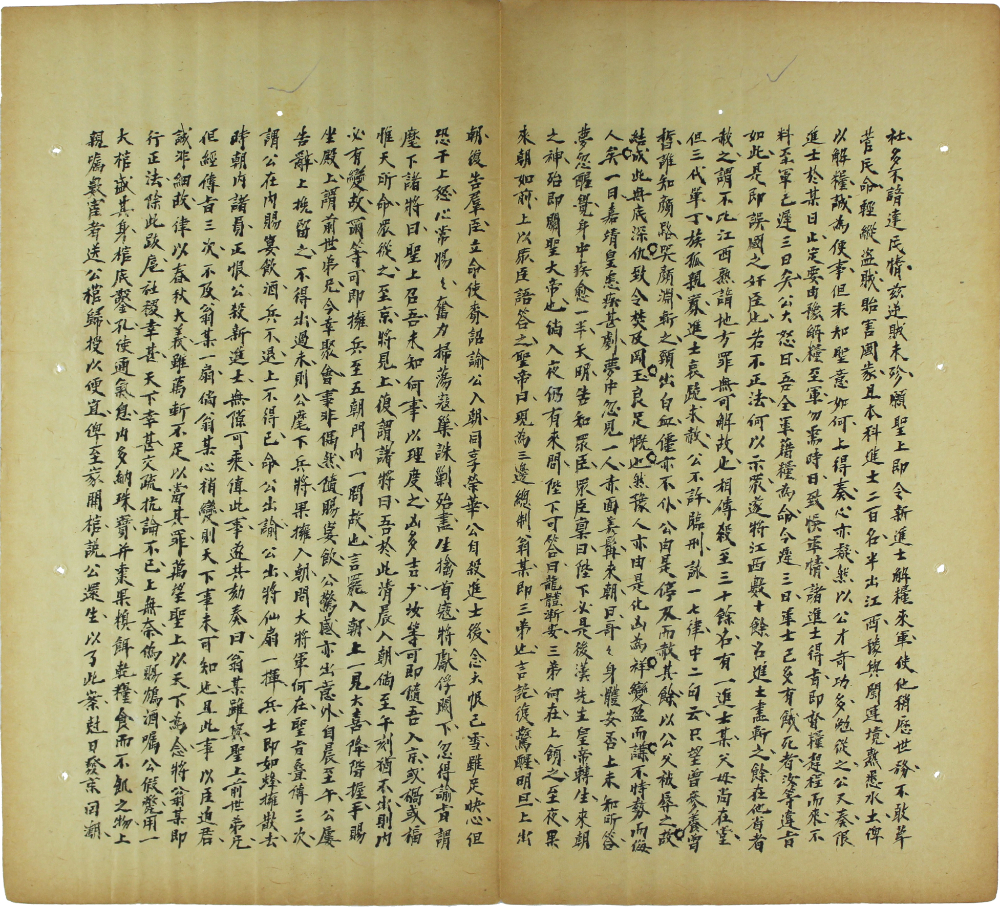 社多不諳達民情玆逆賊未殄願聖上即令新進士解糧來軍使他稍歷世務不敢草
菅民命輕縱盜賊貽害國家且本科進士二百名半出江西陵與閩連境熟悉水土俾
以解糧誠為便事但未知聖意如何上得奏心亦惄然以公才奇功多勉從之公天奏限
進士於某日止定要由豫解糧至軍勿需時日致悞軍情諸進士得旨即督糧趕程而來不
料至軍已遲三日矣公大怒曰吾全軍藉糧為命今遲三日軍士已多有餓死者汝等違旨
如此是即誤國之奸臣也若不正法何以示眾遂將江西數十餘名進士盡斬之餘在他省者
赦之謂不比江西熟諳地方罪無可解故也相傳殺至三十餘名有一進士某父母尚在堂
但三代單丁族孤親寡進士哀跪求赦公不許臨刑詠一七律中二句云只望曾參養曾
晳誰知顏路哭顏淵斬之頸出白血僵亦不仆公由是停刀而赦其餘以公父被辱之故
結成此無底深仇致令焚及岡玉良足慨也然豫人亦由是化凶為祥變盈而謙不恃勢而侮
人矣一日嘉靖皇患病甚劇夢中忽見一人赤面美髯來朝曰哥々身體安否上未知所答
夢忽醒覺身中疾愈一半天明告知眾臣眾臣稟曰陛下必是後漢先主皇帝轉生來朝
之神殆即關聖大帝也倘入夜仍有來問陛下可答曰龍體漸安三弟何在上領之至夜果
來朝如前上以眾臣語答之聖帝曰現為三邊總制翁某即三弟也言訖復驚醒明旦上出
朝後告羣臣立命使齎詔諭公入朝同享榮華公自殺進士後念大恨已雪雖足快心但
恐干上怒心常惕々奮力掃蕩寇巢誅剿殆盡生擒首寇將獻俘闕下忽得諭旨謂
麾下諸將曰聖上召吾未知何事以理度之凶多吉少汝等可即隨吾入京或禍或福
惟天所命眾從之至京將見上復謂諸將曰吾於此清晨入朝倘至午刻猶不出則內
必有變故爾等可即擁兵至五朝門內一問故也言罷入朝上一見大喜降階握手賜
坐殿上謂前世弟兄今幸聚會事非偶然隨賜宴飲公驚惑亦出意外自晨至午公屢
告辭上挽留之不得出過未則公麾下兵將果擁入朝問大將軍何在聖旨疊傳三次
謂公在內賜宴飲酒兵不退上不得已命公出諭公出將仙扇一揮兵士即如蜂擁散去
時朝內諸員正恨公殺新進士無隙可乘值此事遂共劾奏曰翁某雖宲聖上前世弟兄
但經傳旨三次不及翁某一扇倘翁某心稍變則天下事未可知也且此事以臣迫君
誠非細故律以春秋大義雖萬斬不足以當其罪萬望聖上以天下為念將翁某即
行正法除此跋扈社稷幸甚天下幸甚交疏抗論不已上無奈偽賜鴆酒囑公假斃用一
大棺盛其身棺底鑿孔使通氣息內多納珠寶并棗果糗餌乾糧食而不飢之物上
親囑數差者送公棺歸授以便宜俾至家開棺說公還生以了此案尅日發京回潮